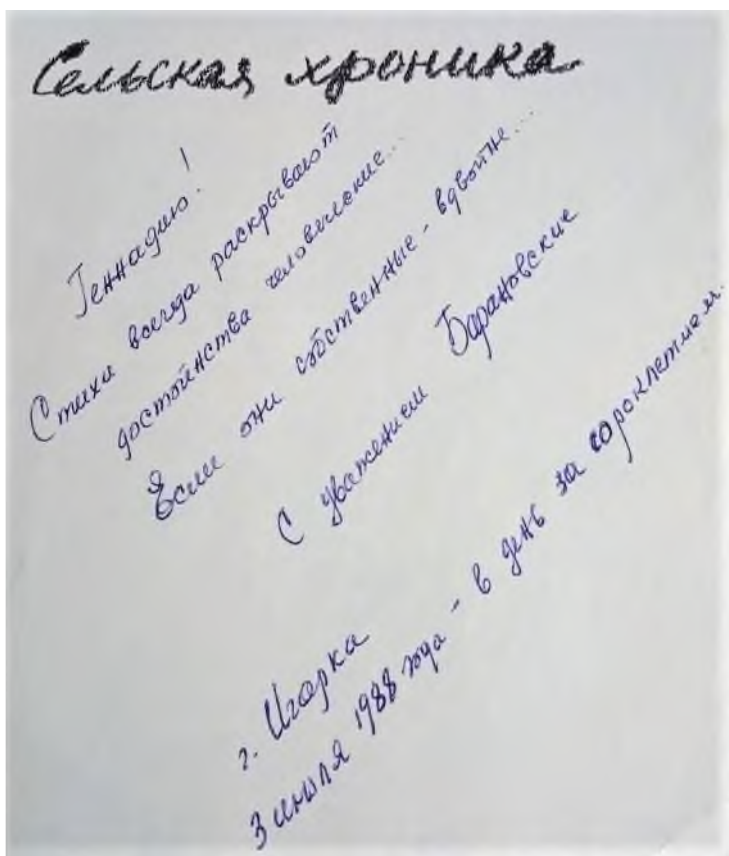 Сельская хроника
Геннадию!
Стихи всегда раскрывают
достоинства человеческие...
Если они собственные - вдвойне...
С уважением Барановские
г. Игарка
3 июля 1988 года - в день за сороклетием.